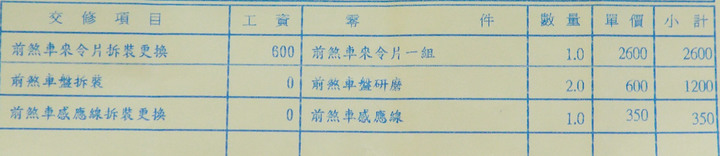 交修項目 工資 零件 數量 單價 小計
前煞車來令片拆裝更換 600 前煞車來令片一組 1.0 2600 2600
前煞車盤拆裝 0 前煞車盤研磨 2.0 600 1200
前煞車感應線拆裝更換 0 前煞車感應線 1.0 350 350